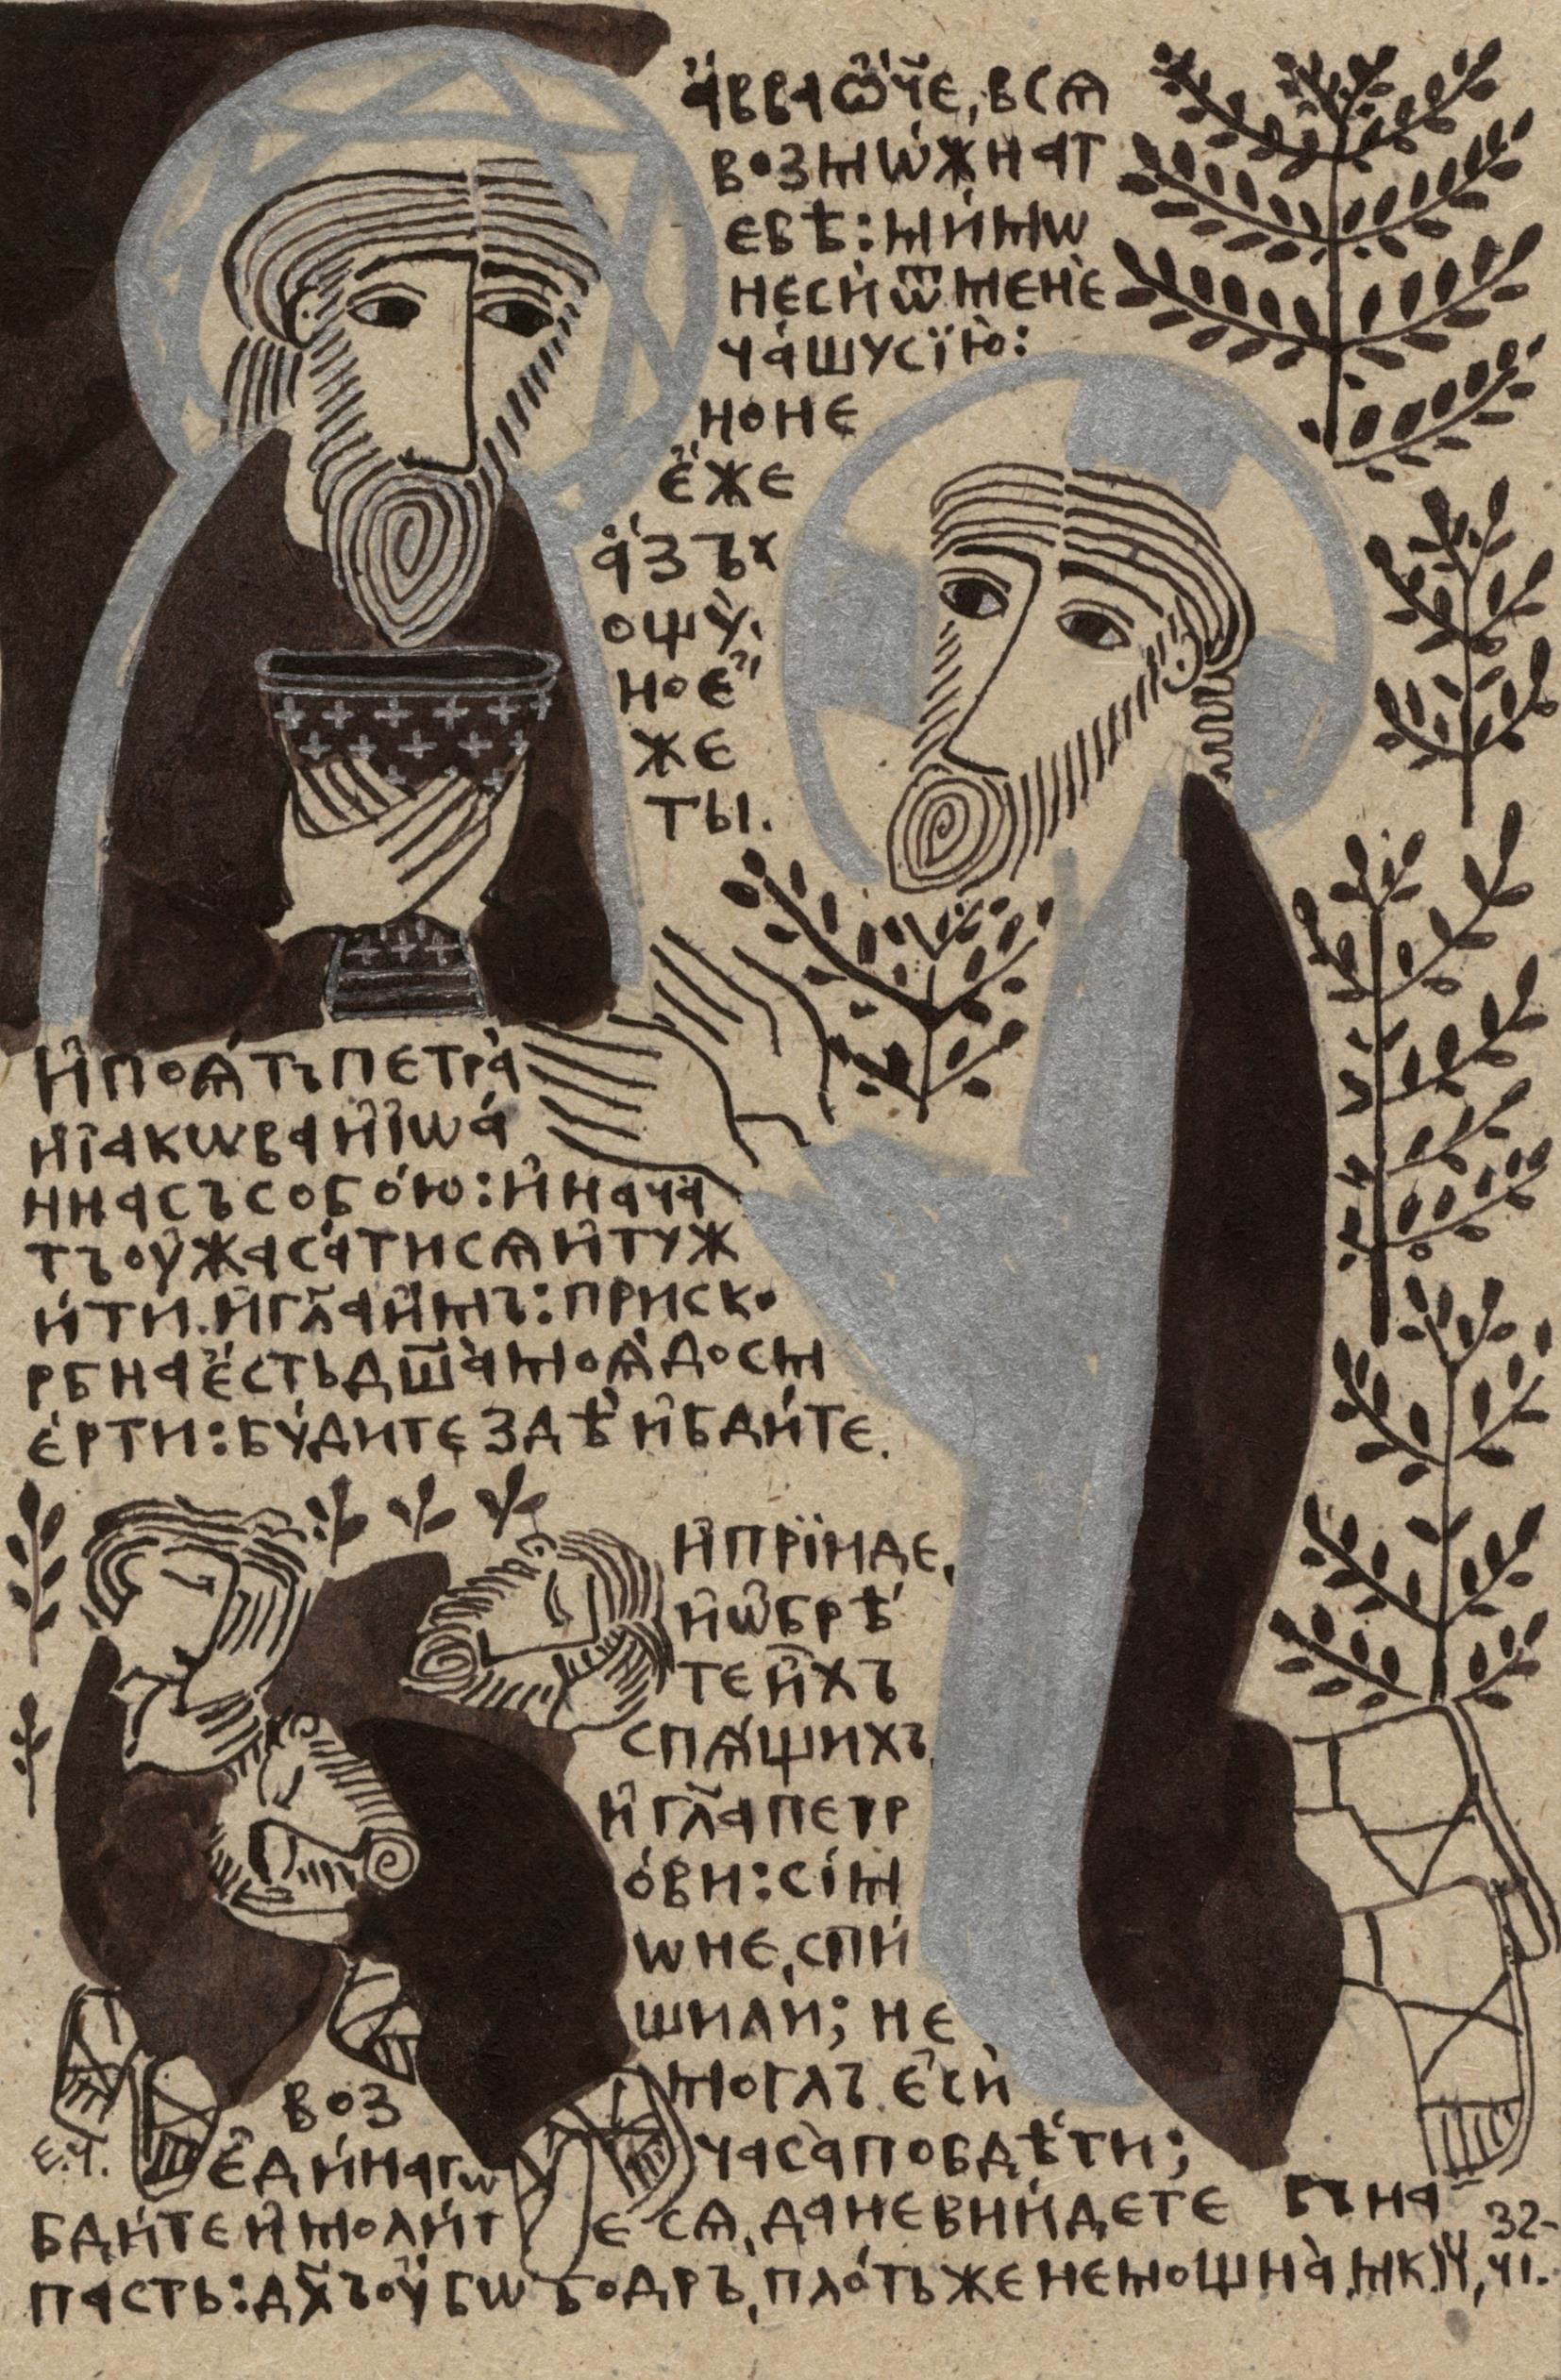 А҆́вва ѻ҆́ч҃е, всѧ̑
возмѡ́жна т
ебѣ̀: ми́мѡ
неси̑ ѿ менѐ
ча́шу сїю̀:
но не
є҆́же
а҆́зъ х
ощу̀,
но є҆́
же
ты̀.
И҆ поѧ́тъ петра̀
и҆ і҆а́кѡва и҆ і҆ѡа́
нна съ собо́ю: и҆ нача́
тъ оу҆жаса́тисѧ и҆ туж
и́ти. и҆ гл҃а и҆̀мъ: приск
рбна є҆́сть дш҃а̀ моѧ̀ до см
е́рти: бу́дите здѣ̀ и҆ бди́те.
И҆ прїи́де,
и҆ ѡ҆брѣ́
те и҆̀хъ
спѧ́щихъ,
и҆ гл҃а петр
о́ви: сі́м
ѡне, спи́
ши ли; не
могл́ъ є҆сѝ
є҆ди́нагѡ
часа̀ побдѣ́ти;
бди́те и҆ моли́т е сѧ, да не вни́дете въ на
пасть: дх҃ъ оу҆́бѡ бодръ, пло́ть же немощна̀. мк. 14,
воз
32-
41.
Е.Ч.